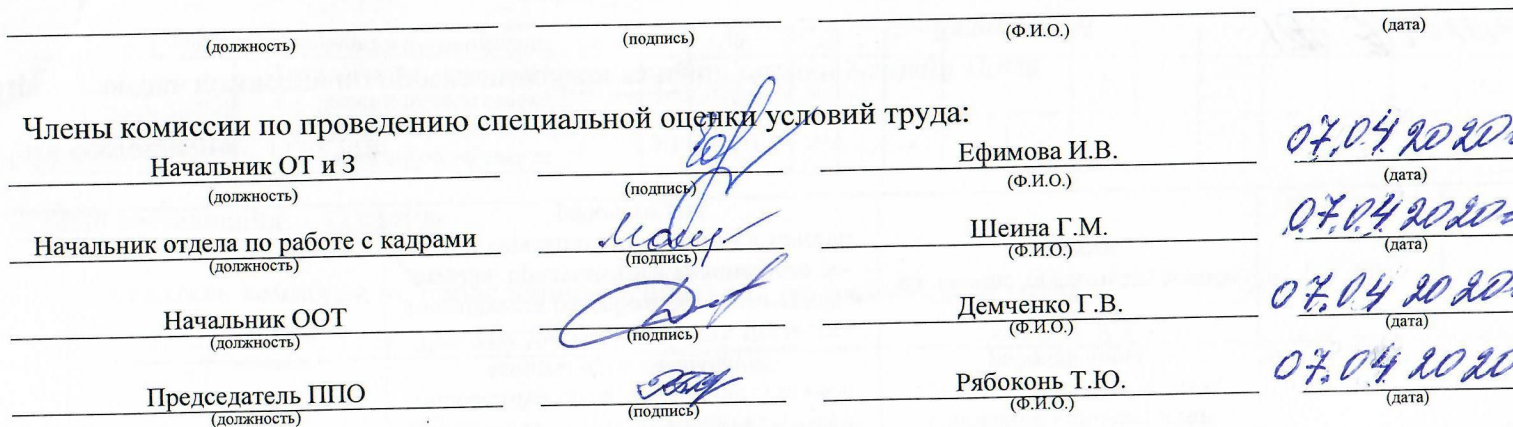 (должность) (подпись) (Ф.И.О.) (дата)
Члены комиссии по проведению специальной оценки условий труда:
Начальник ОТ и З Ефимова И.В. 07.04.2020г
(должность) (подпись) (Ф.И.О.) (дата)
Начальник отдела по работе с кадрами Шеина Г.М. 07.04.2020г
(должность) (подпись) (Ф.И.О.) (дата)
Начальник ООТ Демченко Г.В. 07.04 2020г
(должность) (подпись) (Ф.И.О.) (дата)
Председатель ППО Рябоконь Т.Ю. 07.04 2020
(должность) (подпись) (Ф.И.О.) (дата)